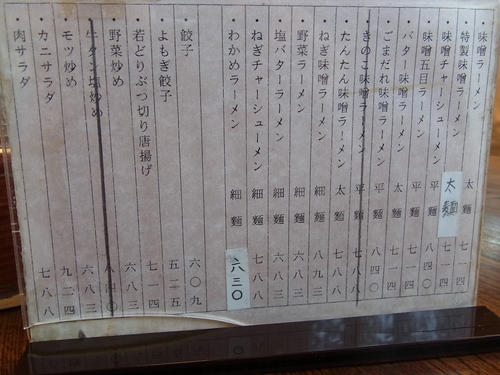 ・味噌ラーメン 太麺 七一四
・特製味噌ラーメン 太麺 七一四
・味噌チャーシューメン 平麺 八四〇
・味噌五目ラーメン 平麺 七一四
・バター味噌ラーメン 太麺 七一四
・ごまだれ味噌ラーメン 平麺 八四〇
・きのこ味噌ラーメン 平麺 七八八
・たんたん味噌ラーメン 太麺 七八八
・ねぎ味噌ラーメン 細麺 八九三
・野菜ラーメン 細麺 六八三
・塩バターラーメン 細麺 六八三
・ねぎチャーシューメン 細麺 七八八
・わかめラーメン 細麺 六三〇
・餃子 六〇九
・よもぎ餃子 五二五
・若どりぶつ切り唐揚げ 七一四
・野菜炒め 六八三
・牛タン塩炒め 八四〇
・モツ炒め 六八三
・カニサラダ 九二四
・肉サラダ 七八八